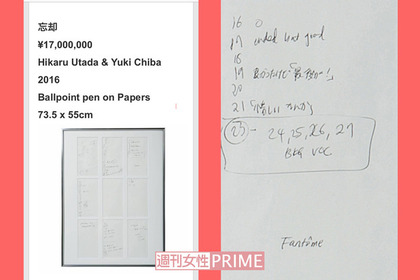 忘却
¥17,000,000
Hikaru Utada & Yuki Chiba
2016
Ballpoint pen on Papers
73.5 x 55cm
16 0
17 ended last good
18
19
20
21
23 - 24, 25, 26, 27
BKG VOC
Fantôme
週刊女性PRIME